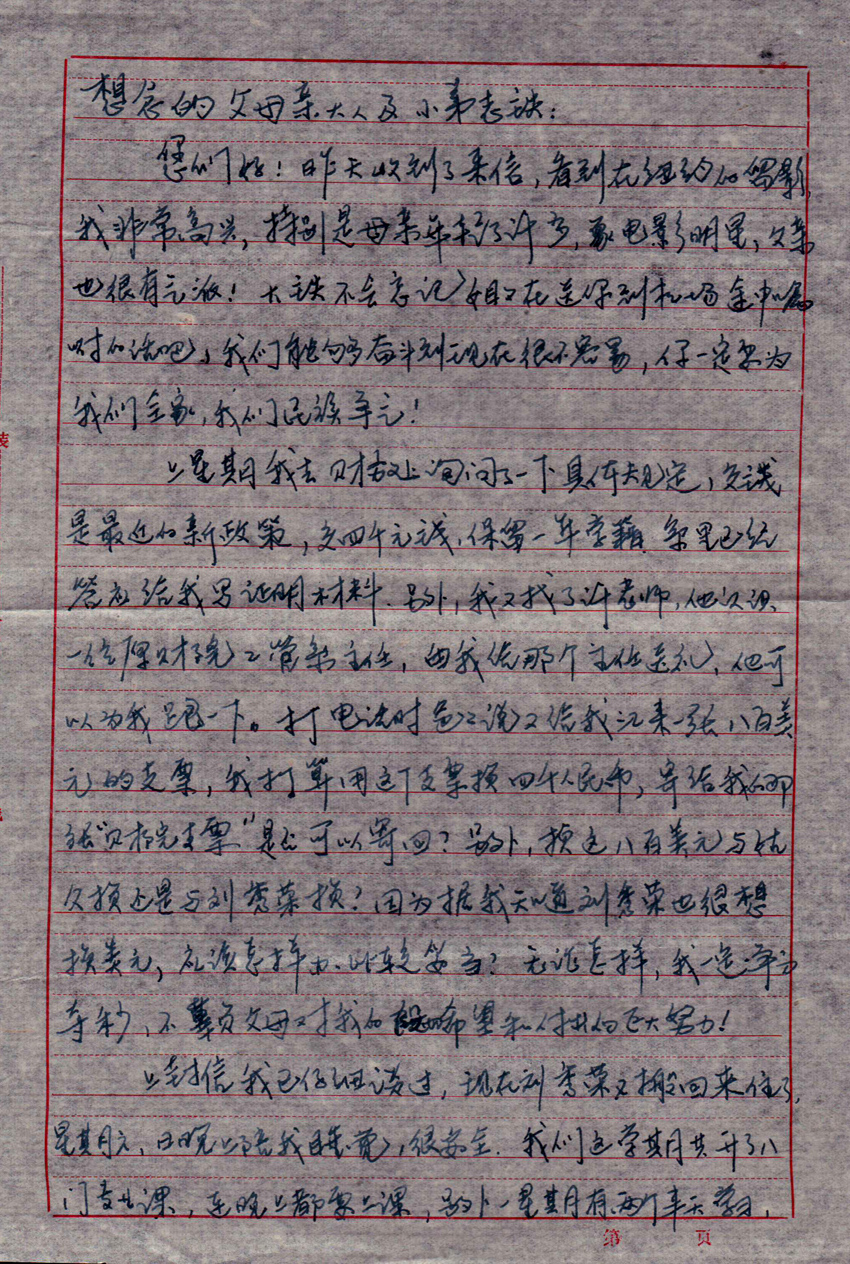 想念的父母亲大人及小弟志铁：
您们好！昨天收到了来信，看到在纽约的留影，
我非常高兴，特别是母亲年轻了许多，象电影明星，父亲
也很有气派！大铁不会忘记姐姐在送你到机场途中嘱
咐的话吧，我们能够奋斗到现在很不容易，你一定要为
我们全家，我们民族争光！
上星期我去财校上询问了一下具体规定，交钱
是最近的新政策，交四千元钱，保留一年学籍，系里已经
答应给我写证明材料。另外，我又找了许老师，他认识
一位原财院工管系主任，由我给那个主任送礼，他可
以为我 一下。打电话时爸又说又给我汇来一张八百美
元的支票，我打算用这个支票换四千人民币，寄给我的那
张“财院支票”是否可以寄回？另外，换这八百美元与
换还是与刘秀荣换？因为据我知道刘秀荣也很想
换美元，应该怎样办比较妥当？无论怎样，我一定争分
夺秒，不辜负父母对我的希望和付出的巨大努力！
上封信我已仔细谈过，现在刘秀荣又搬回来住了，
星期六、日晚上陪我睡觉，很安全。我们这学期共开了八
门专业课，连晚上都要上课，另外一星期有两个半天学习，
第 页